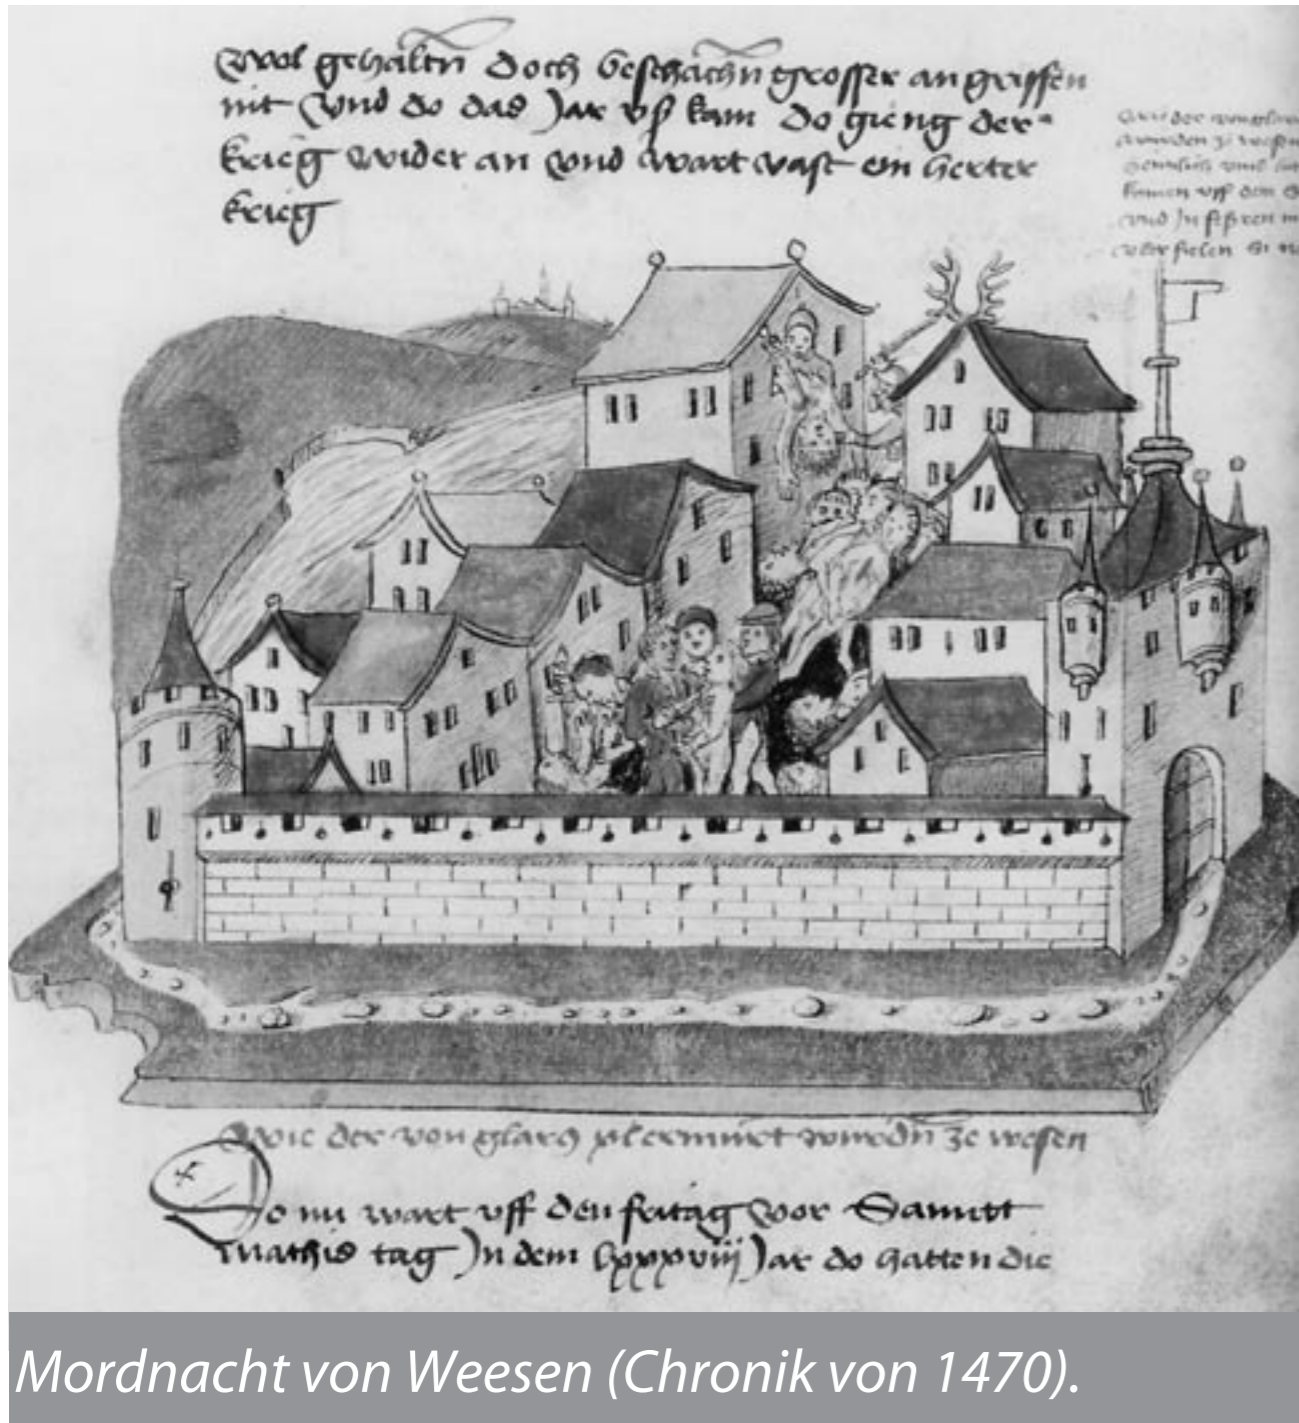 Wol gehaltn doch beschachn grosser an griffen
nit Vnd do das Jar vß kam do gieng der
krieg wider an vnd wart vast ein herter
krieg
vnd In
fielen
Wie der von glarus wurdn ze wesen
Do nu wart vff den fritag vor Sannt
Mathis tag In dem lxxxviij Jar do hatten die
Mordnacht von Weesen (Chronik von 1470).